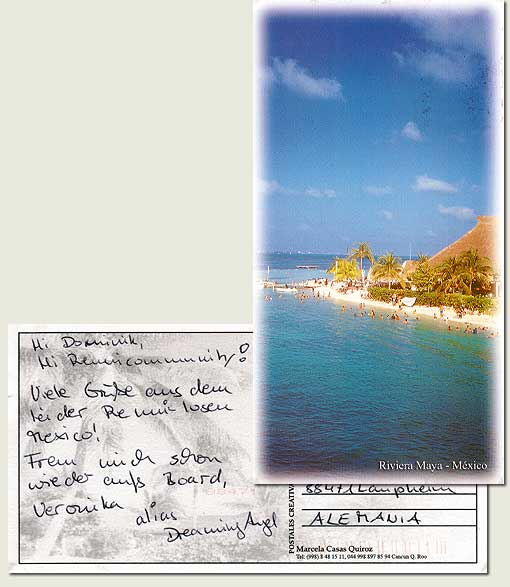 Riviera Maya - México
Hi Dominik,
Hi Remicommunity!
Viele Grüße aus dem
leider Remi-losen
Mexico!
Freu mich schon
wieder aufs Board,
Veronika
alias
DreamingAngel
88471 Laupheim
ALEMANIA
POSTALES CREATIVA
Marcela Casas Quiroz
Tel: (998) 8 48 15 11, 044 998 897 85 94 Cancun Q. Roo